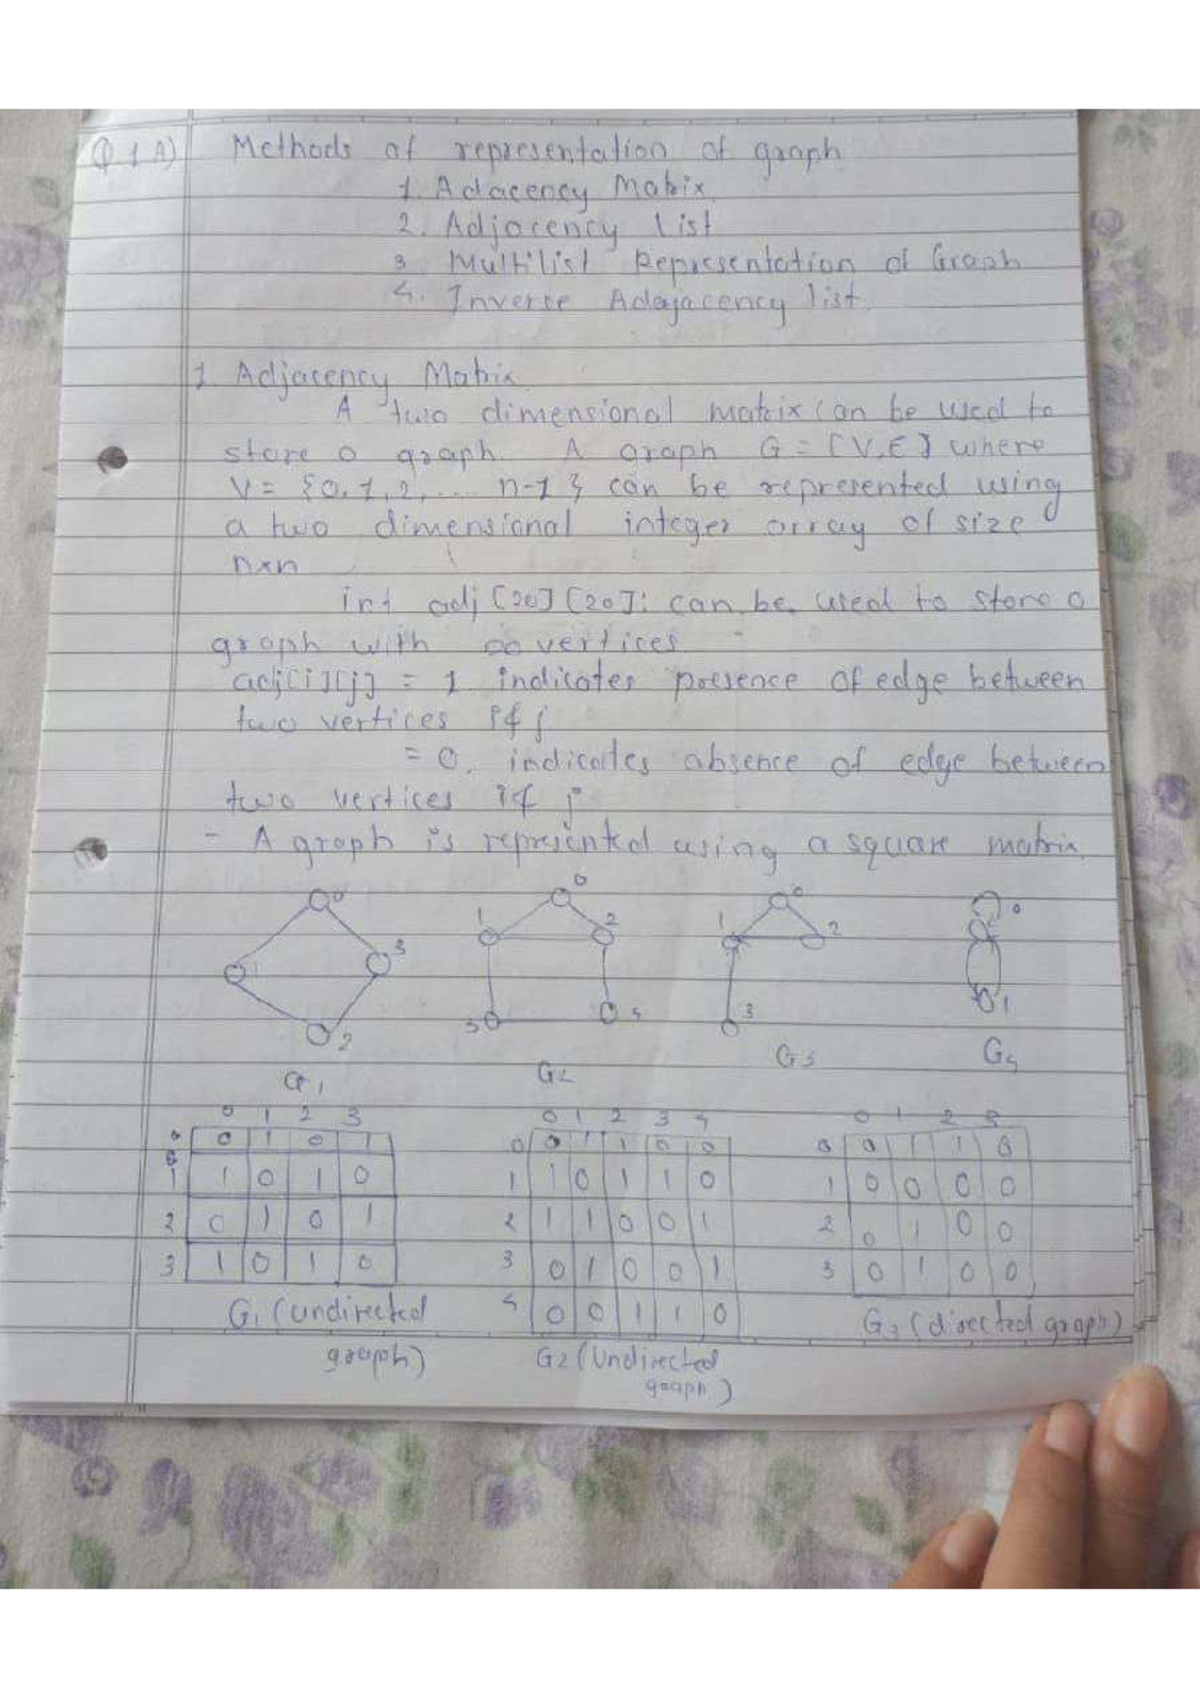 Q 1 A) Methods of representation of graph
1. Adacency Matrix
2. Adjacency list
3 Multilist Representation of Graph
4. Inverse Adajacency list.
1 Adjacency Matrix
A two dimensional matrix can be used to
store a graph. A graph G = [V,E] where
V = {0, 1, 2, .... n-1} can be represented using
a two dimensional integer array of size
n×n
int adj [20] [20]; can be used to store a
graph with vertices
adj[i][j] = 1 indicates presence of edge between
two vertices i & j
= 0, indicates absence of edge between
two vertices i & j
- A graph is represented using a square matrix
0 1 3 2
0 1 2 3 4
0 1 2 3
0 1
G1 G2 G3 G4
0 1 2 3
0 0 1 0 1
1 1 0 1 0
2 0 1 0 1
3 1 0 1 0
G1 (undirected
graph)
0 1 2 3 4
0 0 1 1 0 0
1 1 0 1 1 0
2 1 1 0 0 1
3 0 1 0 0 1
4 0 0 1 1 0
G2 (Undirected
graph)
0 1 2 3
0 0 1 1 0
1 0 0 0 0
2 0 1 0 0
3 0 1 0 0
G3 (directed graph)